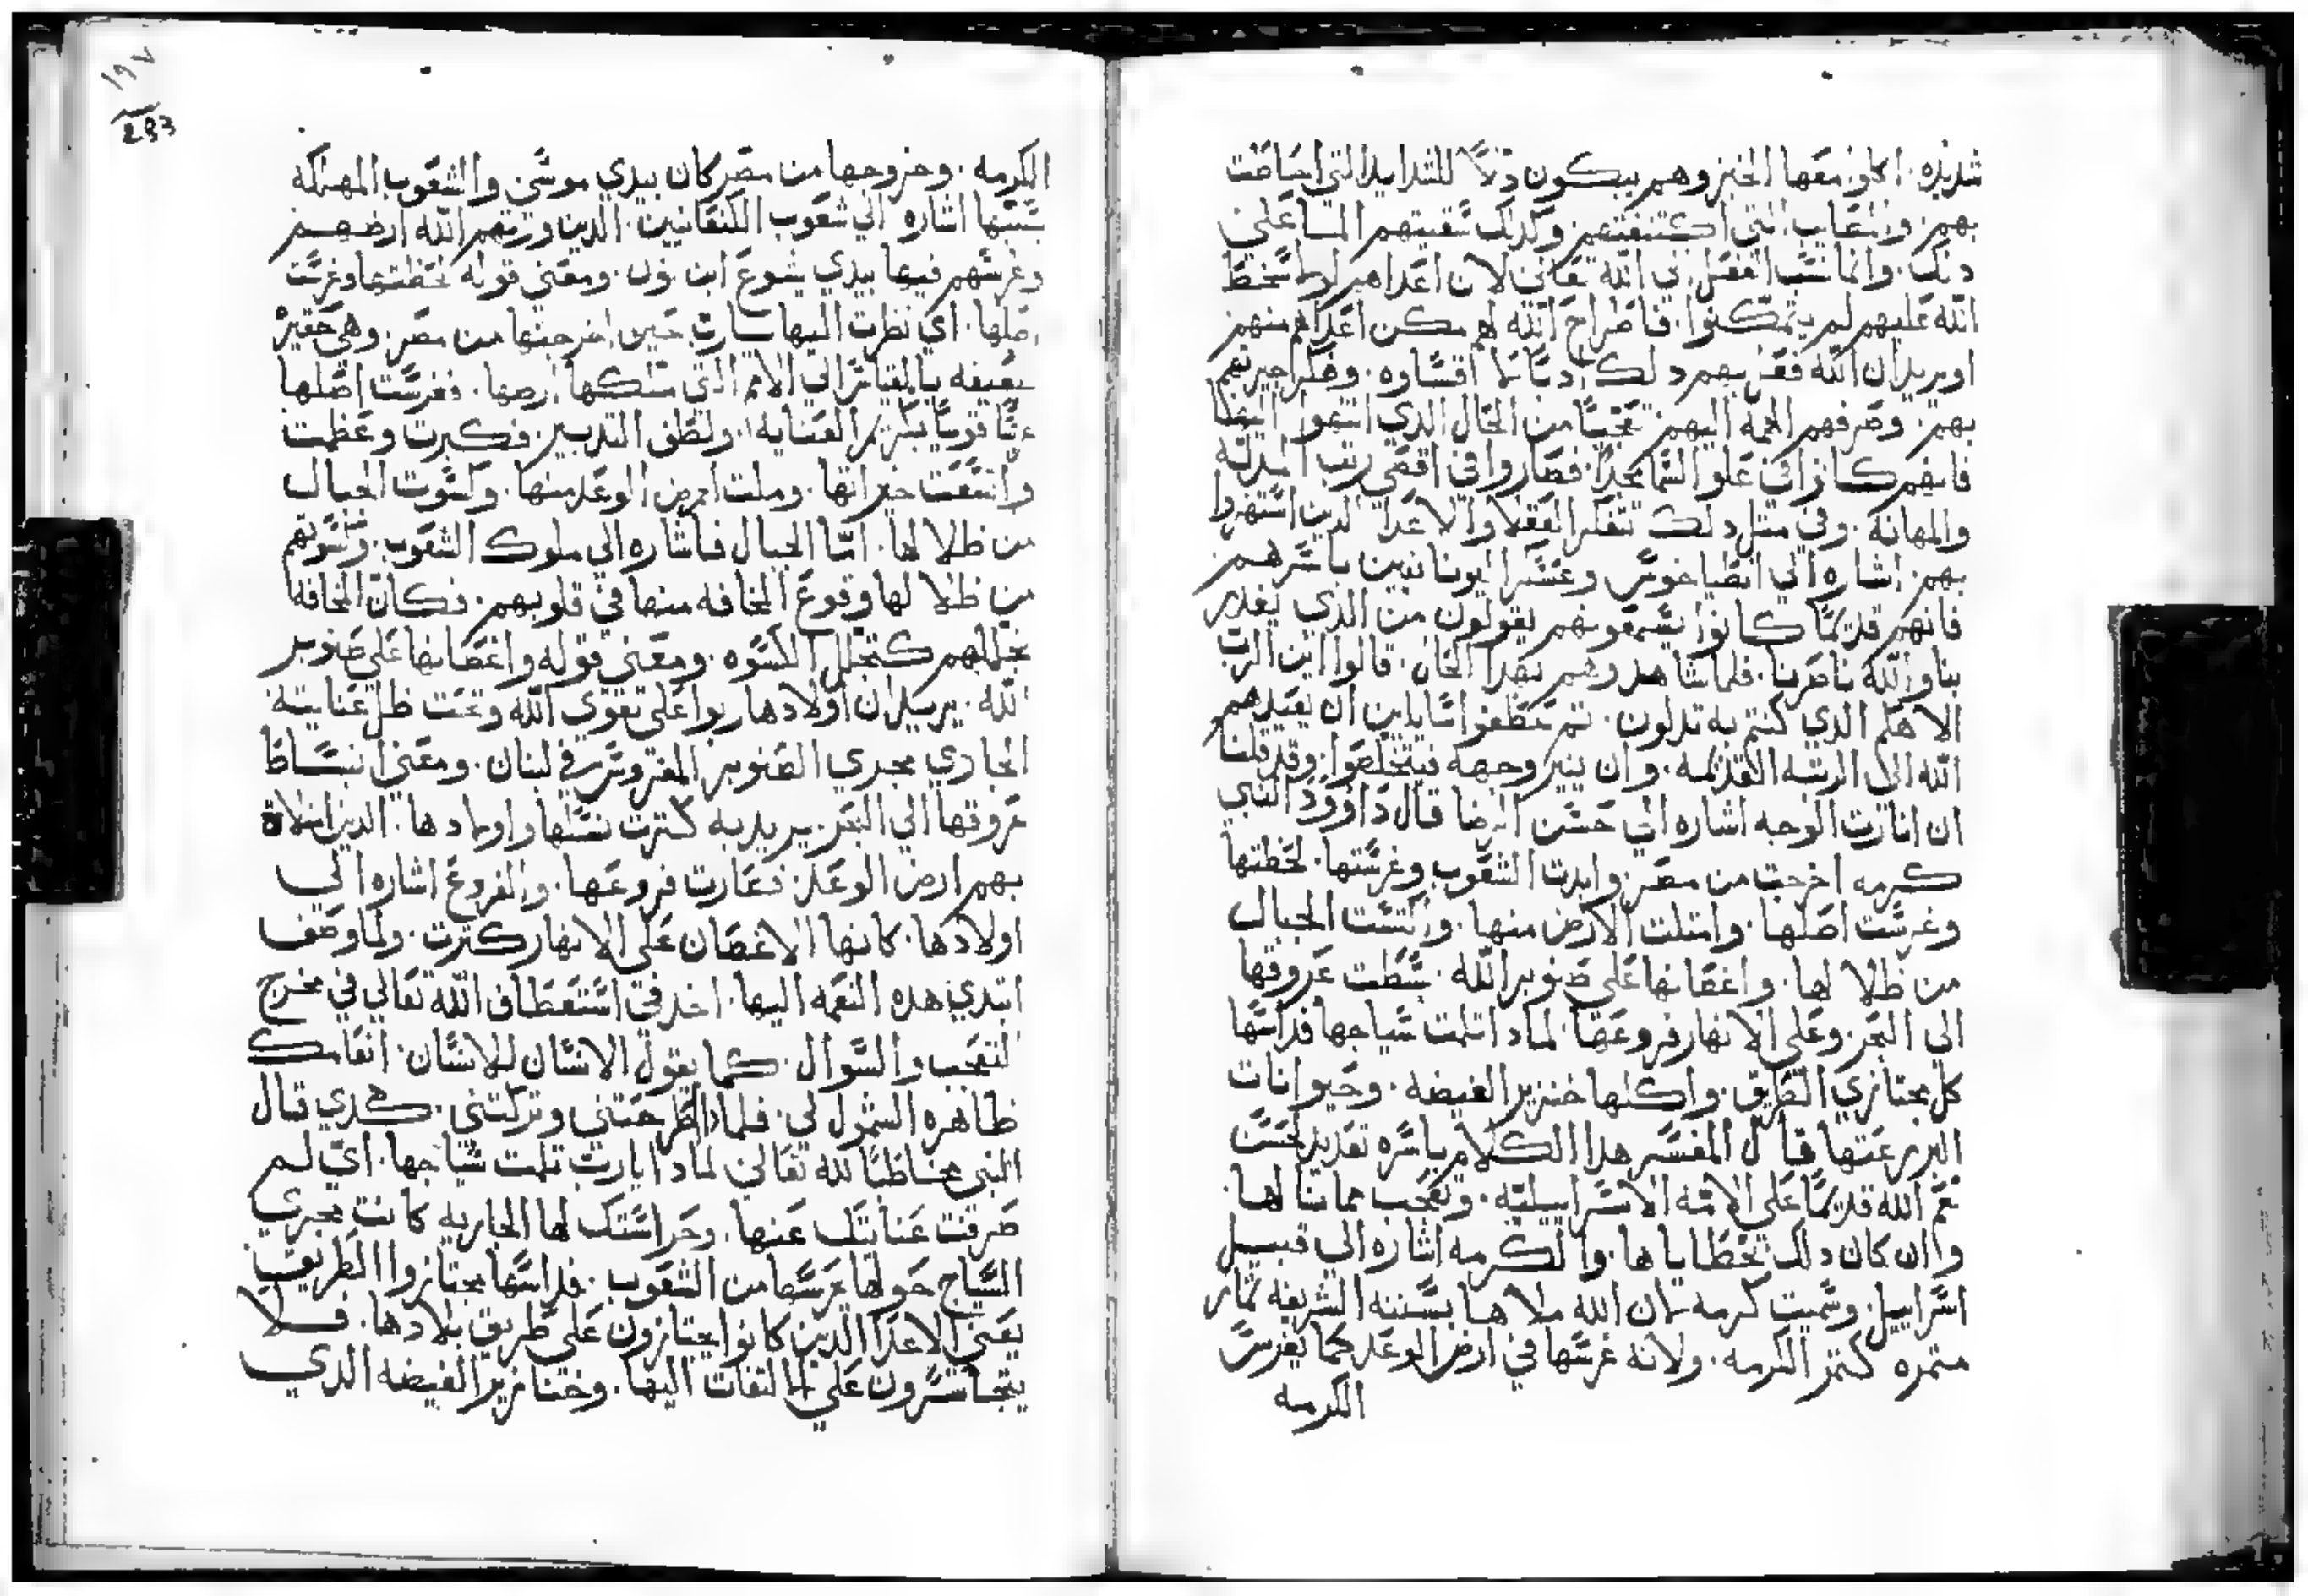 شديده. اكلوا معها الخبز وهم يبكون ذلاً للشدايد التي احاطت
بهم. والمصايب التي اكتنفتهم وكذلك سقيتهم الما على
ذلك. وانما نسب الفعل الى الله تعالى لان اعداهم لولا سخط
الله عليهم لم يتمكنوا. فاطراح الله لهم مكن اعداهم منهم
اويريد ان الله فعل بهم ذلك ادبًا لما اقساوه. وضحك جيرتهم
بهم. وصرفهم الهمه اليهم تعجبًا من الحال الذي انتهوا اليها
فانهم كانوا في علو السما مجدًا. فصاروا في اقصى رتب المذله
والمهانه. وفي مثل ذلك تتفكر العقلا والاعدا الذين استهزوا
بهم. اشاره الي انطياخوس وعسكر اليونانيين باسرهم
فانهم قديمًا كانوا يسمعونهم يقولون من الذي يغدر
بنا والله ناصرنا. فلما شاهدوهم بهذا الحال. قالوا اين الرب
الاهكم الذي كنتم به تدلون. ثم عطفوا سايلين ان يعيدهم
الله الى الرتبه القديمه. وان ينير وجهه فيتخلصوا. وقد قلنا
ان انارت الوجه اشاره الي حسن الرضا قال داوود النبي
كرمه اخرجت من مصر. وابدت الشعوب وغرستها. لحظتها
وغرست اصلها. وامتلت الارض منها. واكتست الجبال
من ظلالها. واغصانها على صنوبر الله. بسطت عروقها
الى البحر. وعلى الانهار فروعها. لماذا تلمت سياجها فداسها
كل مجتازي الطريق. واكلها خنزير الغيضه. وحيوانات
البر رعتها قال المفسر هذا الكلام باسره تعديد لحسن
نعم الله قديمًا على الامه الاسراييليه. وتعجب مما نالها.
وان كان ذلك بخطاياها. والكرمه اشاره الى قبيل
اسراييل. وسميت كرمه لان الله ملاها بسننه الشريفه ثمار
مثمره كثمر الكرمه. ولانه غرسها في ارض الوعد كما يغرس
الكرمه
١٩٧
293
الكرمه. وخروجها من مصر كان بيدي موسى والشعوب المهلكه
بسببها اشاره الي شعوب الكنعانيين. الذين ورثهم الله ارضهم
وغرسهم فيها بيدي يشوع ابن نون. ومعنى قوله لحظتها وغرست
اصلها. اي نظرت اليها يارب حين اخرجتها من مصر. وهي حقيره
ضعيفه بالقياس الي الامم التي ملكتها ارضها. فغرست اصلها
غرسًا قويًا بكريم العنايه. ولطف التدبير. فكبرت وعظمت
واتسعت خيراتها. وملت ارض الوعد منها. وكسوت الجبال
من ظلالها. امّا الجبال فاشاره الي ملوك الشعوب. وكسوتهم
من ظلالها وقوع المخافه منها في قلوبهم. فكان المخافه
تجللهم كتجلل الكسوه. ومعنى قوله واغصانها على صنوبر
الله. يريد ان اولادها ربوا على تقوى الله وتحت ظل عنايته
الجاري مجرى الصنوبر المغروس في لبنان. ومعنى انبساط
عروقها الي البحر. يريد به كثرت نسلها واولادها. الذين امتلات
بهم ارض الوعد. فصارت فروعها. والفروع اشاره الي
اولادها. كانها الاغصان على الانهار كثرت. ولما وصف
ابتدي هذه النعمه اليها. اخذ في استعطاف الله تعالي في مخرج
التعجب والسوال. كما يقول الانسان للانسان. انعامك
ظاهره الشمول لي. فلماذا اطرحتني وتركتني. كهذي قال
النبي مخاطبًا لله تعالى لماذا يارب تلمت سياجها. اي لم
صرفت عنايتك عنها. وحراستك لها الجاريه كانت مجرى
السياج حولها يحرسها من الشعوب. فداسها مجتازوا الطريق
يعني الاعدا الذين كانوا يجتازون على طريق بلادها. فلا
يتجاسرون على الالتفات اليها. وخنازير الغيضه الذي